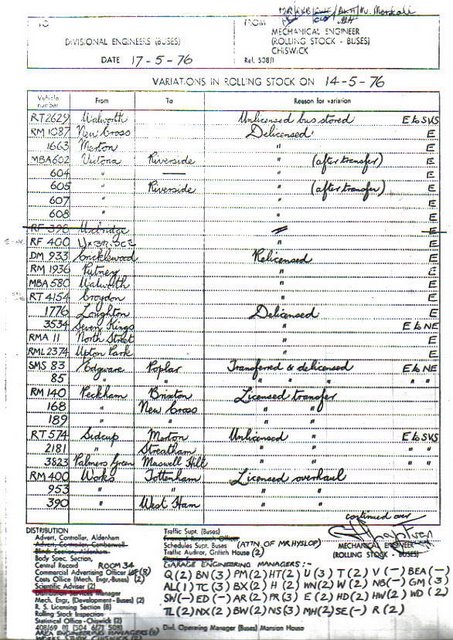 TO
FROM
DIVISIONAL ENGINEERS (BUSES)
MECHANICAL ENGINEER
(ROLLING STOCK - BUSES)
CHISWICK
DATE 17-5-76
Ref. 508/1
VARIATIONS IN ROLLING STOCK ON 14-5-76
Vehicle number From To Reason for variation
RT2629 Walworth Unlicensed bus stored E & SVS
RM 1087 New Cross Delicensed E
1663 Merton " E
MBA602 Victoria Riverside " (after transfer) E
604 " — " E
605 " Riverside " (after transfer) E
607 " " E
608 " " E
RF 396 Uxbridge " E
RF 400 Uxbridge " E
DM 933 Cricklewood Relicensed E
RM 1936 Putney " E
MBA 580 Walworth " E
RT 4154 Croydon " E
1776 Loughton Delicensed E
3534 Seven Kings " E & NE
RMA 11 North Street " E
RML 2374 Upton Park " E
SMS 83 Edgware Poplar Transferred & delicensed E & NE
85 " " " " " " "
RM 140 Peckham Brixton Licensed transfer
168 " New Cross " "
189 " " " "
RT 574 Sidcup Merton Unlicensed " E & SVS
2181 " Streatham " " " "
3823 Palmers Green Muswell Hill " " " "
RM 400 Works Tottenham Licensed overhaul
953 " " " "
390 " West Ham " "
continued over
MECHANICAL ENGINEER
(ROLLING STOCK - BUSES)
DISTRIBUTION
Advert. Controller, Aldenham
Body Supt. Section,
Central Record ROOM 34
Commercial Advertising Officer
Costs Office (Mech. Engr. Buses) (2)
Scientific Adviser (2)
Mech. Engr. (Development - Buses)
R. S. Licensing Section (8)
Rolling Stock Inspectorate
Statistical Office - Chiswick (2)
Traffic Supt. (Buses)
Schedules Supt. Buses (ATTN. OF MR HYSLOP)
Traffic Auditor, Griffith House (2)
GARAGE ENGINEERING MANAGERS :-
Q(2) BN(3) PM(2) HT(2) U(3) TT(2) V(-) BEA(-)
AL(1) TC(3) BX(2) H(2) WN(2) W(2) NB(-) GM(3)
SW(-) ED(-) AR(2) PR(3) E(2) HD(2) HW(2) WD(2)
TL(2) NX(2) BW(2) NS(3) MH(2) SE(-) R(2)
Divl. Operating Manager (Buses) Mansion House